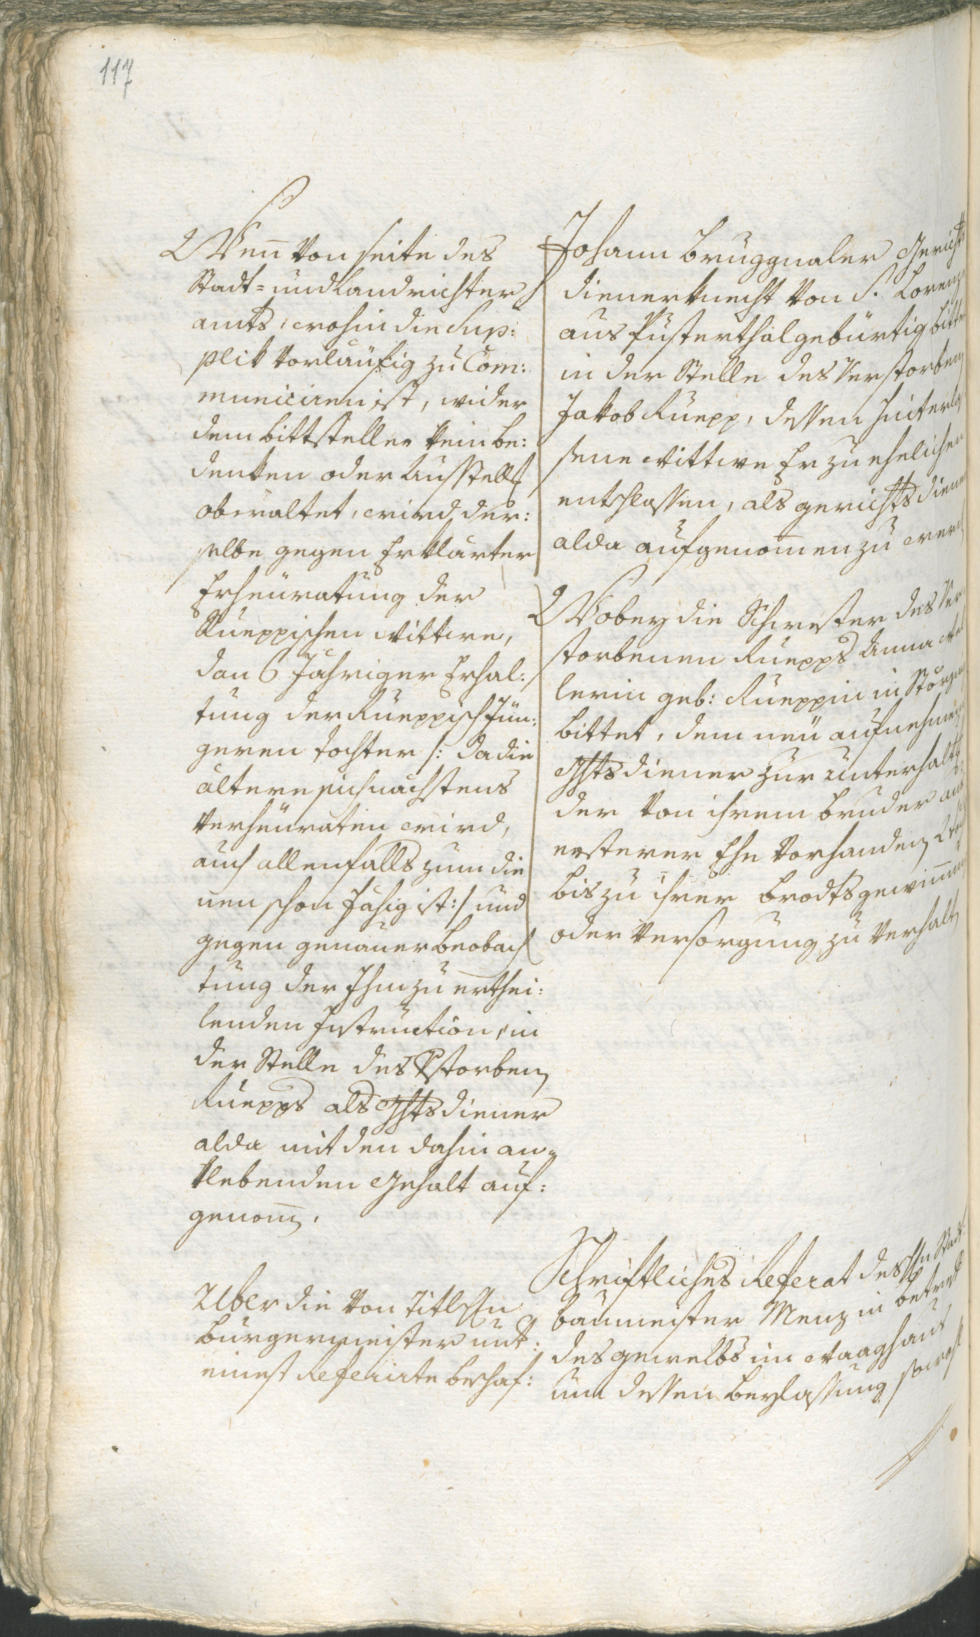 117
Wenn von seite des
Stadt- und Landrichter
amts, wohin die Sup:
plik vorläufig zu Com:
municiren ist, wider
dem bittsteller kein be:
denken oder Ausstellg
obwaltet, wird der:
selbe gegen Erklärter
Erheuratung der
Rueppischen wittwe,
dan 6 Jähriger Erhal:
tung der Rueppisch Jün:
geren tochter /: da die
ältere sich nächstens
verheuraten wird,
auch allenfalls zum die
nen schon fähig ist :/ und
gegen genauer beobach
tung der Ihm zu erthei:
lenden Instruction, in
der Stelle des Vstorbenen
Ruepps als Ghtsdiener
alda mit den dahin an-
klebenden Gehalt auf:
genomen.
Über die von Titl Hn
burgermeister mit
einest Referirte beschaf:
Johann Bruggnaler Gerichts
dienerknecht von S. Lorenz
aus Pusterthal gebürtig bitte
in der Stelle des Verstorbenen
Jakob Ruepp, dessen hinterla
sene wittwe Er zu ehelichen
entschlossen, als gerichtsdiene
alda aufgenomen zu wer
Wobey die Schwester des Ver
storbenen Ruepps Anna
lerin geb: Rueppin in
bittet, dem neu aufnehme
Ghtsdiener zur unterhaltg
der von ihrem bruder aus
ersterer Ehe vorhanden 2
bis zu ihrer brodtsgewinnu
oder Versorgung zu verhalten
Schriftliches Referat des Hn Stadt
baumeister Menz in betref
des gewelbs im Waaghaus
um dessen beylassung